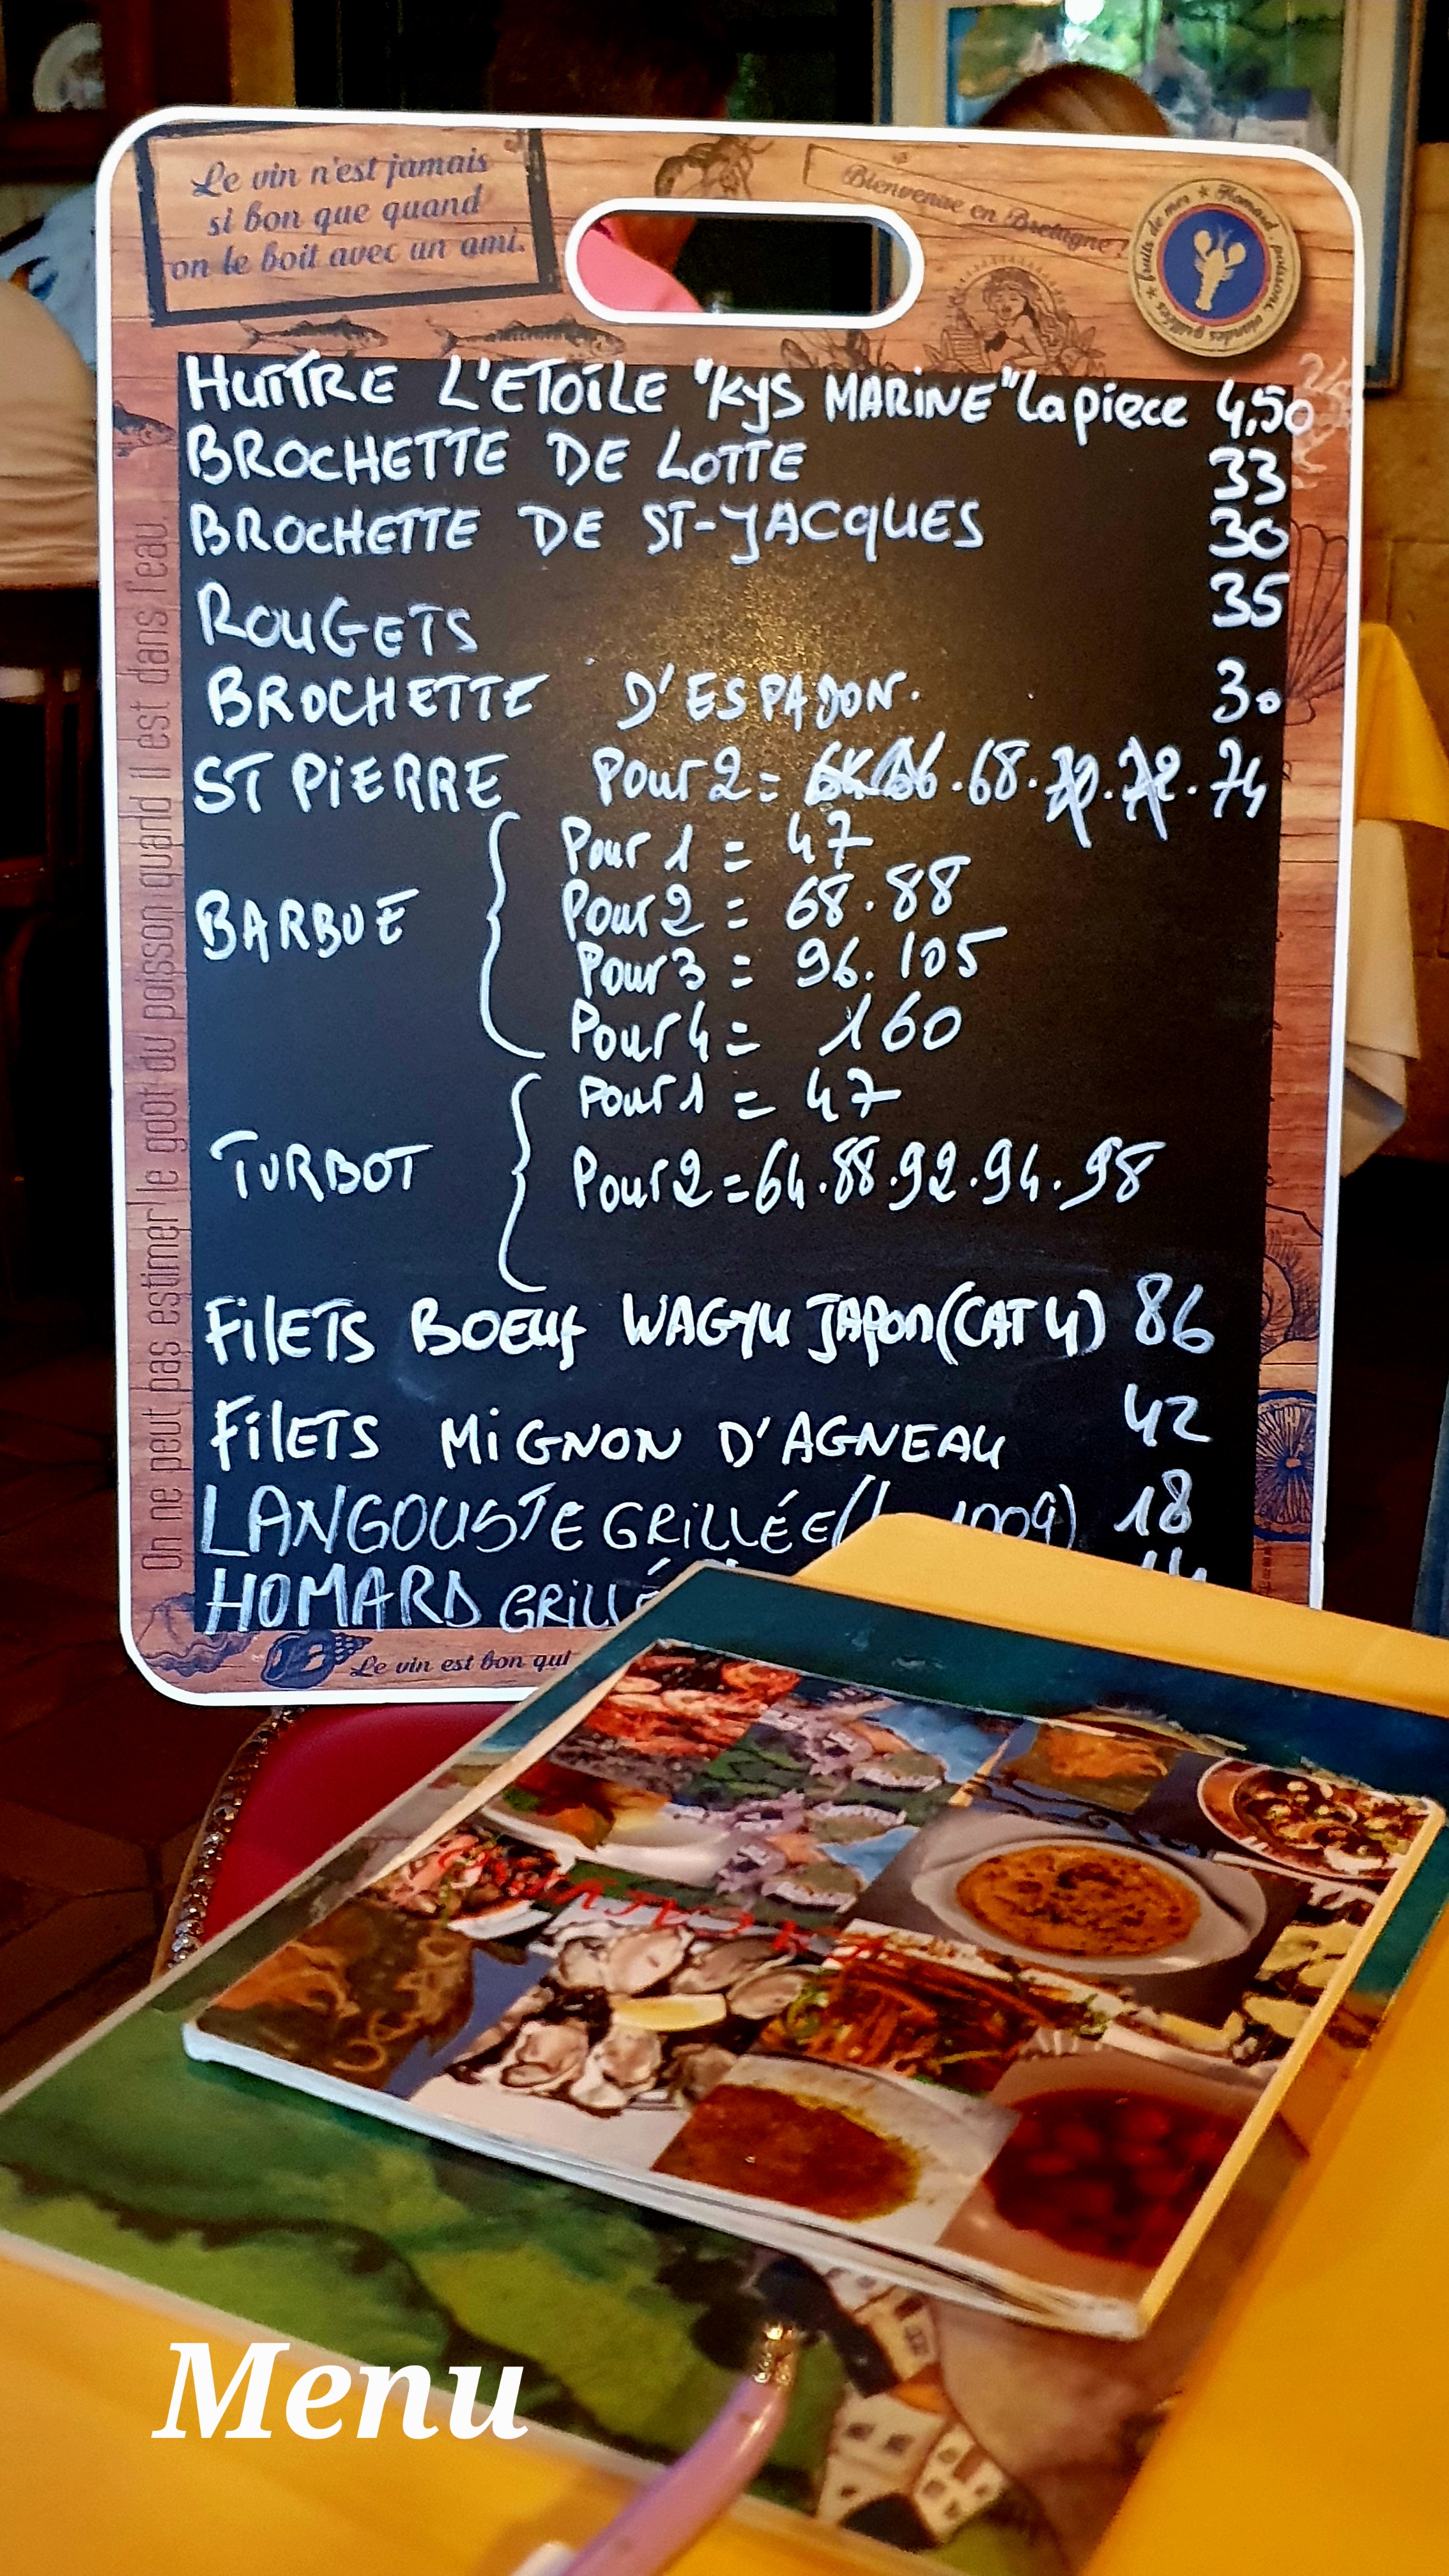 Le vin n'est jamais
si bon que quand
on le boit avec un ami.
Bienvenue en Bretagne !
Homard, poissons, viandes grillées ★ fruits de mer ★
HUITRE L'ETOILE "KYS MARINE" la piece 4,50
BROCHETTE DE LOTTE 33
BROCHETTE DE ST-JACQUES 30
ROUGETS 35
BROCHETTE D'ESPADON. 30
ST PIERRE Pour 2 = 68. 74
BARBUE
Pour 1 = 47
Pour 2 = 68.88
Pour 3 = 96.105
Pour 4 = 160
TURBOT
Pour 1 = 47
Pour 2 = 64.88.92.94.98
FILETS BOEUF WAGYU JAPON (CAT 4) 86
FILETS MIGNON D'AGNEAU 42
LANGOUSTE GRILLÉE ( 100g) 18
HOMARD GRILLÉ
Le vin est bon qui
On ne peut pas estimer le goot du poisson quand il est dans l'eau.
Menu